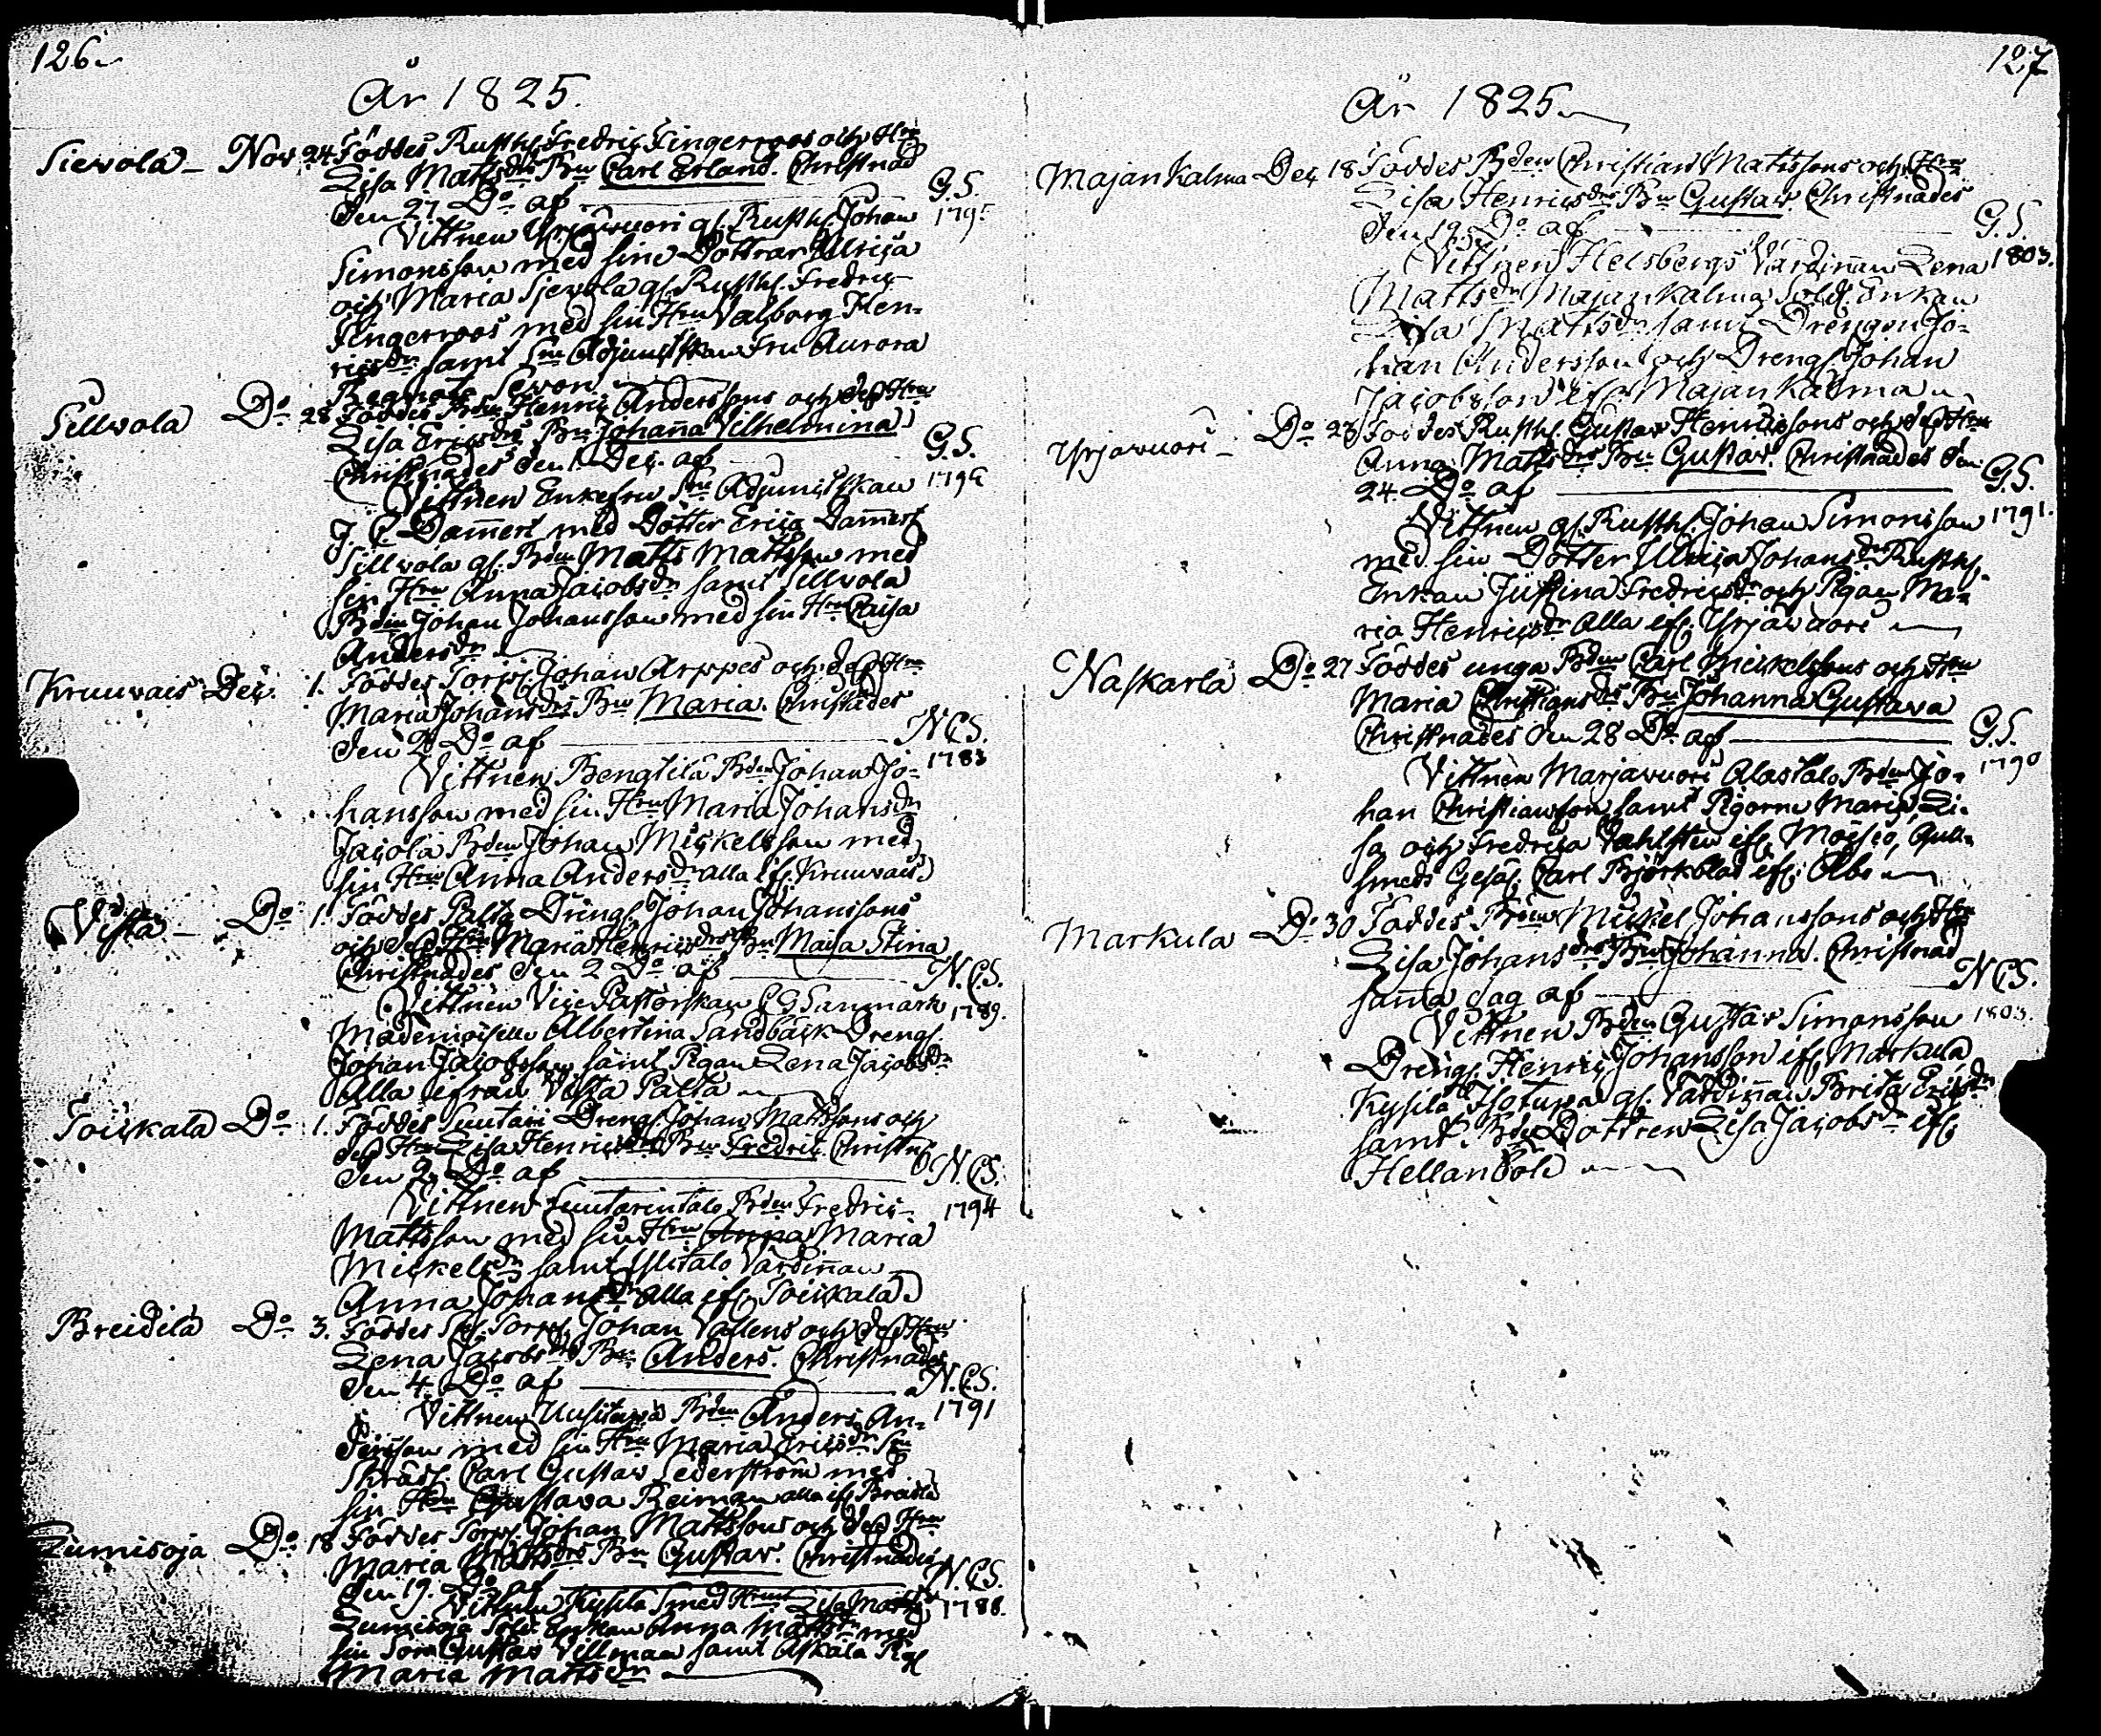 126.
År 1825.
Sievola – Nov. 24 Föddes Rusth. Fredric Fingerroos och Hru
Lisa Mattsdrs Bn Carl Erland. Christnad
den 27 Do af G.S.
1795
Vittnen Yrjävuori gl. Rusth. Johan
Simonsson med sine Döttrar Ulrica
och Maria Sjevola gl. Rusth. Fredric
Fingerroos med sin Hru Valborg Hen-
ricsdr samt Adjunctskan Fru Aurora
Sevon
Sillvola Do 28 Föddes Bden Henric Anderssons och dess Hru
Lisa Ericsdrs Bn Johanna Vilhelmina
Christnades den 1 Dec. af G.S.
Vittnen Enkefru Adjunctskan 1796
J. C. Dammert med Dotter Erica Dammert
Sillvola gl. Bden Matts Mattsson med
sin Hru Anna Jacobsdr samt Sillvola
Bden Johan Johansson med sin Hru Caisa
Andersdr
Kruuvais Dec. 1. Föddes Torp. Johan Arppes och dess Hru
Maria Johansdrs Bn Maria. Christnades
den 2 Do af N.C.S.
1783
Vittnen Bengtilä Bden Johan Jo-
hansson med sin Hru Maria Johansdr
Jacola Bden Johan Mickelsson med
sin Hru Anna Andersdr alla ifr. Kruuvais
Vista – Do 1. Föddes Palta Drengs Johan Johanssons
och dess Hru Maria Henricsdrs Bn Maja Stina
Christnades den 2 Do af N.C.S.
Vittnen Vice Pastorskan C G Sanmark 1789.
Mademoiselle Albertina Sandbäck Dreng.
Johan Jacobsson samt Pigan Lena Jacobsdr
Alla ifrån Vista Palta
Toickala Do 1. Föddes Suutari Dreng. Johan Mattssons och
dess Hru Lisa Henricsdrs Bn Fredric Christn.
den 2 Do af N.C.S.
Vittnen Suutarintalo Bden Fredric 1794
Mattsson med sin Hru Anna Maria
Mickelsdr samt Ylitalo Värdinnan
Anna Johansdr Alla ifr. Toickala
Breidilä Do 3. Föddes Torp. Johan Vallens och dess Hru
Lena Jacobsdrs Bn Anders. Christnades
den 4. Do af N.C.S.
Vittnen Uusitupa Bden Anders An- 1791
dersson med sin Hru Maria Ericsdr
Skrädd. Carl Gustav Sederström med
sin Hru Gustava Reiman alla ifr. Breidilä
Lumisoja Do 18 Föddes Torp. Johan Mattssons och dess Hru
Maria Mattsdrs Bn Gustav. Christnades
den 19. Do af N.C.S.
Vittnen Kyssila Smed Hrun Lisa Mattsdr 1788.
Lumisoja Sold. Enkan Anna Mattsdr med
sin Son Gustav Villman samt Askala Pig.
Maria Mattsdr
127
År 1825
Majankalma Dec. 18 Föddes Bden Christian Matssons och Hru
Lisa Henricsdrs Bn Gustav. Christnades
den 19. Do af G.S.
1803.
Vittnen Helsbergs Värdinnan Lena
Mattsdr Majankalma Sold. Enkan
Lisa Mattsdr samt Drengen Jo-
han Andersson och Dreng. Johan
Jacobsson ifr. Majankalma
Yrjävuori – Do 23 Föddes Rusth. Gustav Henricssons och dess Hru
Anna Mattsdrs Bn Gustav. Christnades den
24. Do af G.S.
Vittnen gl. Rusth. Johan Simonsson 1791.
med sin Dotter Ulrica Johansdr Rusth.
Enkan Justina Fredricsdr och Pigan Ma-
ria Henricsdr Alla ifr. Yrjävuori
Naskarla Do 27 Föddes unga Bden Carl Mickelssons och Hru
Maria Christiansdrs Bn Johanna Gustava
Christnades den 28 Do af G.S.
1790
Vittnen Marjavuori Alastalo Bden Jo-
han Christiansson samt Pigorne Maria, Li-
sa och Fredrica Dahlsten ifr. Moisio, Gull-
smeds Gesäl. Carl Björkblad ifr. Åbo
Markula Do 30 Föddes Bden Mickel Johanssons och Hru
Lisa Johansdrs Bn Johanna. Christnad
samma dag af N.C.S.
Vittnen Bden Gustav Simonsson 1803.
Dreng. Henric Johansson ifr. Markula
Kyssilä Isotupa gl. Värdinnan Brita Ericsdr
samt Bde Dottren Lisa Jacobsdr ifr.
Hellanbole